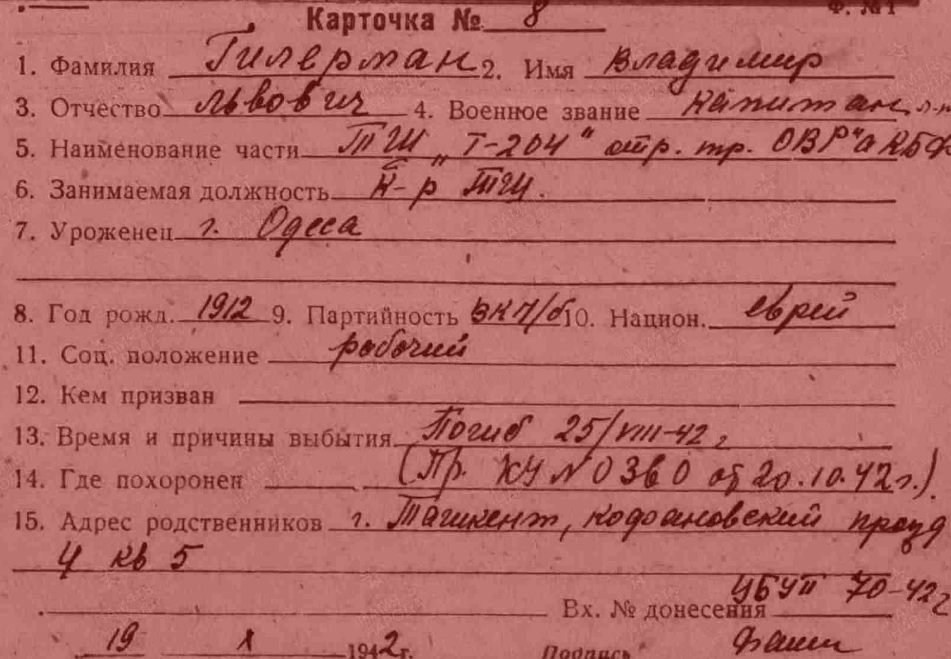 Ф. №1
Карточка № 8
1. Фамилия Гилерман 2. Имя Владимир
3. Отчество Львович 4. Военное звание капитан л-н
5. Наименование части ТЩ „Т-204" отр. тр. ОВР"а КБФ
6. Занимаемая должность К-р ТЩ.
7. Уроженец г. Одесса
8. Год рожд. 1912 9. Партийность ВКП/б 10. Национ. еврей
11. Соц. положение рабочий
12. Кем призван
13. Время и причины выбытия Погиб 25/VIII-42 г
14. Где похоронен (Пр. КУ № 0360 от 20.10.42 г.)
15. Адрес родственников г. Ташкент, проезд
4 кв 5
Вх. № донесения 70-42г
19 X 1942 г. Подпись